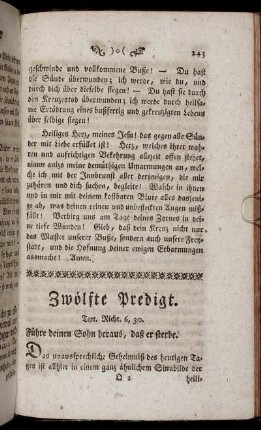 )o(
243
geschwinde und vollkommene Buße! — Du hast
die Sünde überwunden; ich werde, wie du, und
durch dich über dieselbe siegen! — Du hast sie durch
den Kreuzestod überwunden; ich werde durch heilsa-
me Ertödtung eines bußfertig und gekreuzigten Lebens
über selbige siegen!
Heiliges Hertz, meines Jesu! das gegen alle Sün-
der mit Liebe erfüllet ist! Hertz, welches ihrer wah-
ren und aufrichtigen Bekehrung allezeit offen stehet,
nimm anitzt meine demüthigen Umarmungen an, wel-
che ich mit der Innbrunst aller derjenigen, die mir
zuhören und dich suchen, begleite! Wasche in ihnen
und in mir mit deinem kostbaren Blute alles dasjeni-
ge ab, was deinen reinen und unbefleckten Augen miß-
fällt! Verbirg uns am Tage deines Zornes in dei-
ne tiefe Wunden! Gieb, daß dein Kreuz nicht nur
das Muster unserer Buße, sondern auch unsere Frey-
stadt, und die Hofnung deiner ewigen Erbarmungen
ausmache! Amen.
Zwölfte Predigt.
Text. Richt. 6, 30.
Führe deinen Sohn heraus, daß er sterbe.
Das unaussprechliche Geheimniß des heutigen Ta-
ges ist allhier in einem ganz ähnlichem Sinnbilde der
Q 2
heili-